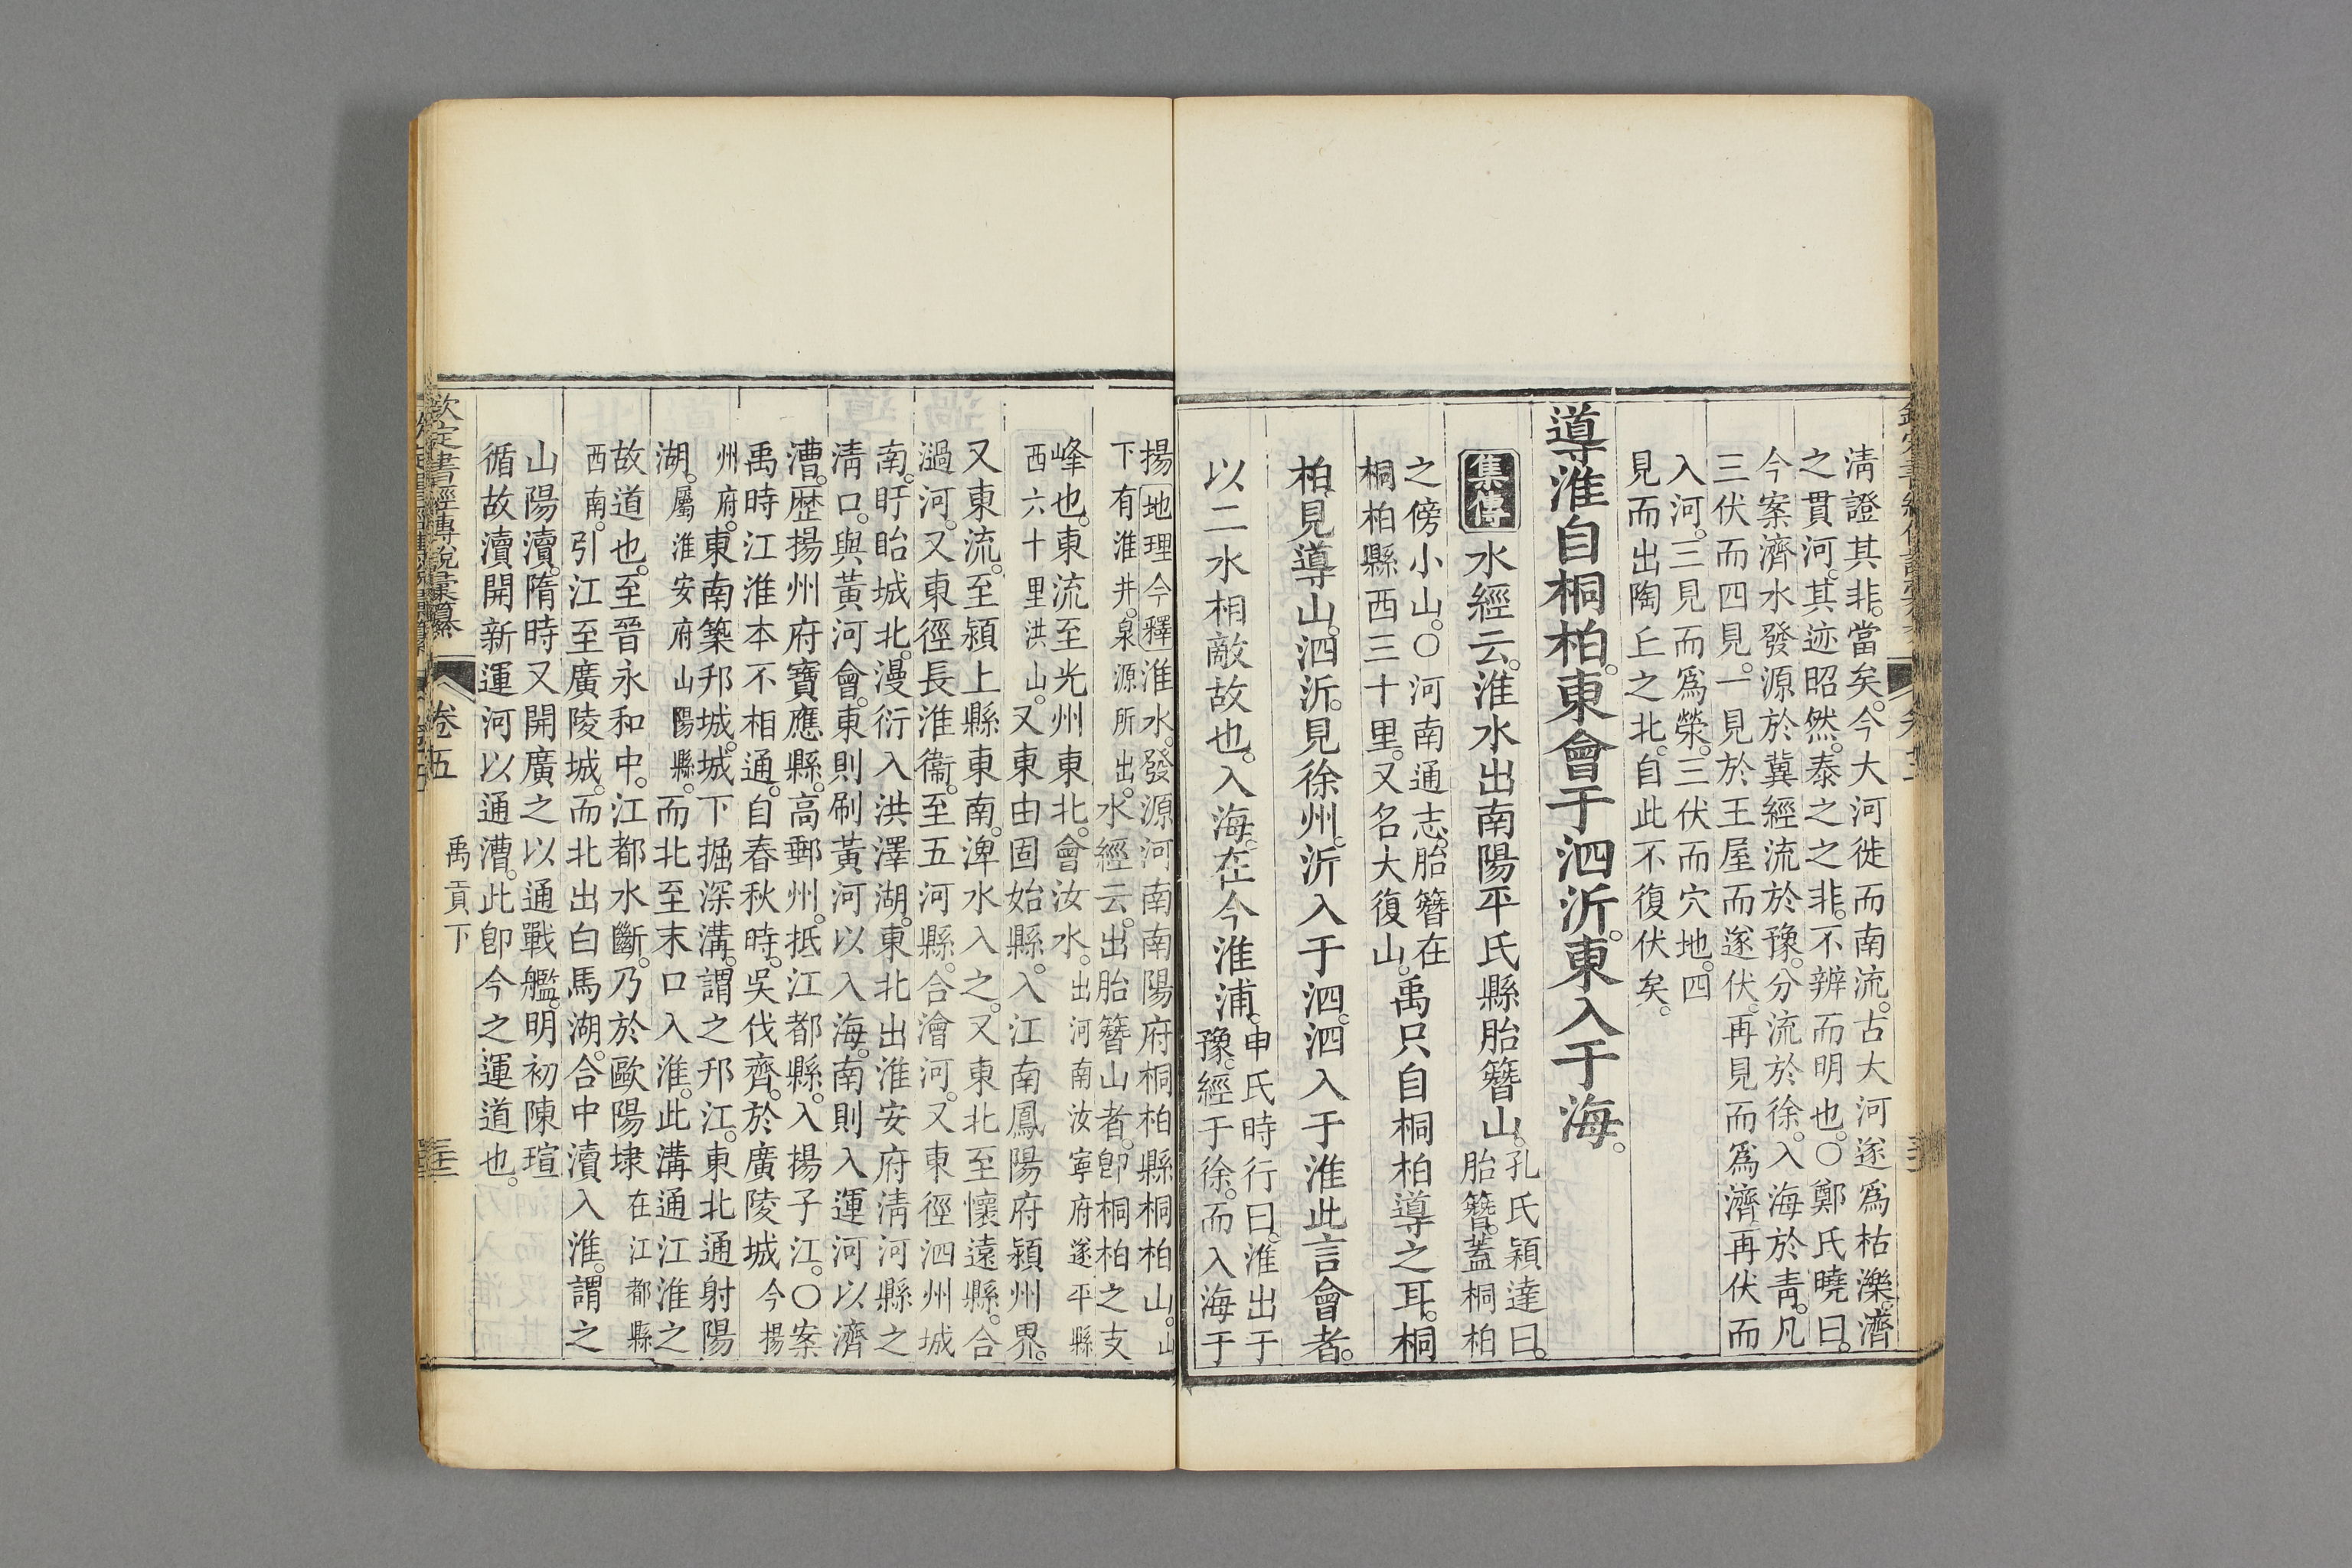 清證其非。當矣。今大河徙而南流。古大河遂爲枯濼。濟
之貫河。其迹昭然。泰之之非。不辨而明也。〇鄭氏曉曰。
今案濟水發源於冀。經流於豫。分流於徐。入海於靑。凡
三伏而四見。一見於王屋而遂伏。再見而爲濟。再伏而
入河。三見而爲滎。三伏而穴地。四
見而出陶丘之北。自此不復伏矣。
導淮自桐柏。東會于泗沂。東入于海。
集傳
水經云。淮水出南陽平氏縣胎簪山。
孔氏穎達曰。
胎簪。蓋桐柏
之傍小山。〇河南通志。胎簪在
桐柏縣西三十里。又名大復山。
禹只自桐柏導之耳。桐
柏。見導山。泗沂。見徐州。沂入于泗。泗入于淮。此言會者。
以二水相敵故也。入海。在今淮浦。
申氏時行曰。淮出于
豫。經于徐。而入海于
揚
地理今釋
淮水。發源河南南陽府桐柏縣桐柏山。山
下有淮井。泉源所出。
水經云。出胎簪山者。卽桐柏之支
峰也。東流至光州東北。會汝水。
出河南汝寧府遂平縣
西六十里洪山。
又東由固始縣。入江南鳳陽府潁州界。
又東流。至潁上縣東南。淠水入之。又東北至懷遠縣。合
渦河。又東徑長淮衞。至五河縣。合澮河。又東徑泗州城
南。盱眙城北。漫衍入洪澤湖。東北出淮安府淸河縣之
淸口。與黃河會。東則刷黃河以入海。南則入運河以濟
漕。歷揚州府寶應縣。高郵州。抵江都縣。入揚子江。〇案
禹時江淮本不相通。自春秋時。吳伐齊。於廣陵城
今揚
州府。
東南築邗城。城下掘深溝。謂之邗江。東北通射陽
湖。
屬淮安府山陽縣。
而北至末口入淮。此溝通江淮之
故道也。至晉永和中。江都水斷。乃於歐陽埭
在江都縣
西南。
引江至廣陵城。而北出白馬湖。合中瀆入淮。謂之
山陽瀆。隋時又開廣之以通戰艦。明初陳瑄
循故瀆開新運河以通漕。此卽今之運道也。
欽定書經傳說彙纂
卷五
禹貢下